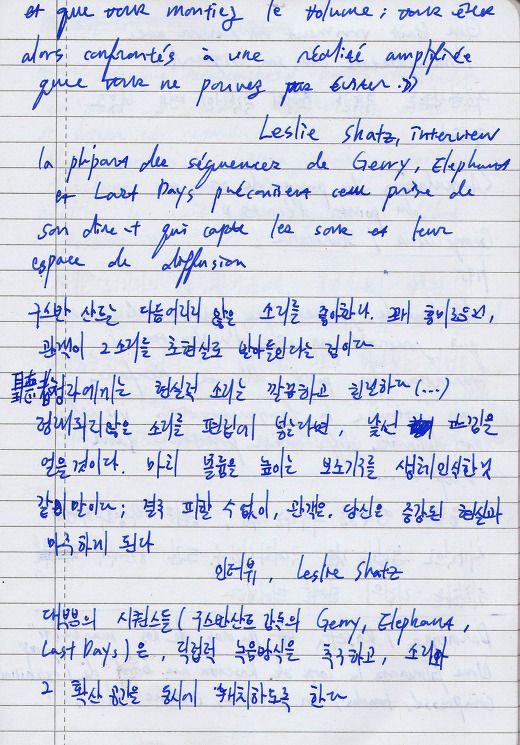 et que vous montiez le volume ; vous êtes
alors confrontés à une réalité amplifiée
que vous ne pouvez pas éviter. »
Leslie Shatz, interview
la plupart des séquences de Gerry, Elephant
et Last Days préconisent cette prise de
son direct qui capte les sons et leur
espace de diffusion
구스반 산트는 다듬어리리 않은 소리를 좋아한다. 꽤 흥미로운건,
관객이 그 소리를 초현실로 받아들인다는 점이다
聽者 청각에게는 현실적 소리는 깔끔하고 친근하다 (...)
정제되지않은 소리를 편집에 넣는다면, 낯선 느낌을
얻을것이다. 마치 볼륨을 높이는 보청기를 생체인식한것
같이 말이다 ; 결국 피할 수 없이, 관객은. 당신은 증강된 현실과
마주하게 된다
인터뷰, Leslie Shatz
대부분의 시퀀스들 ( 구스반산트 감독의 Gerry, Elephant,
Last Days ) 은, 직접적 녹음방식을 추구하고, 소리와
그 확산 공간을 동시에 캐치하도록 한다